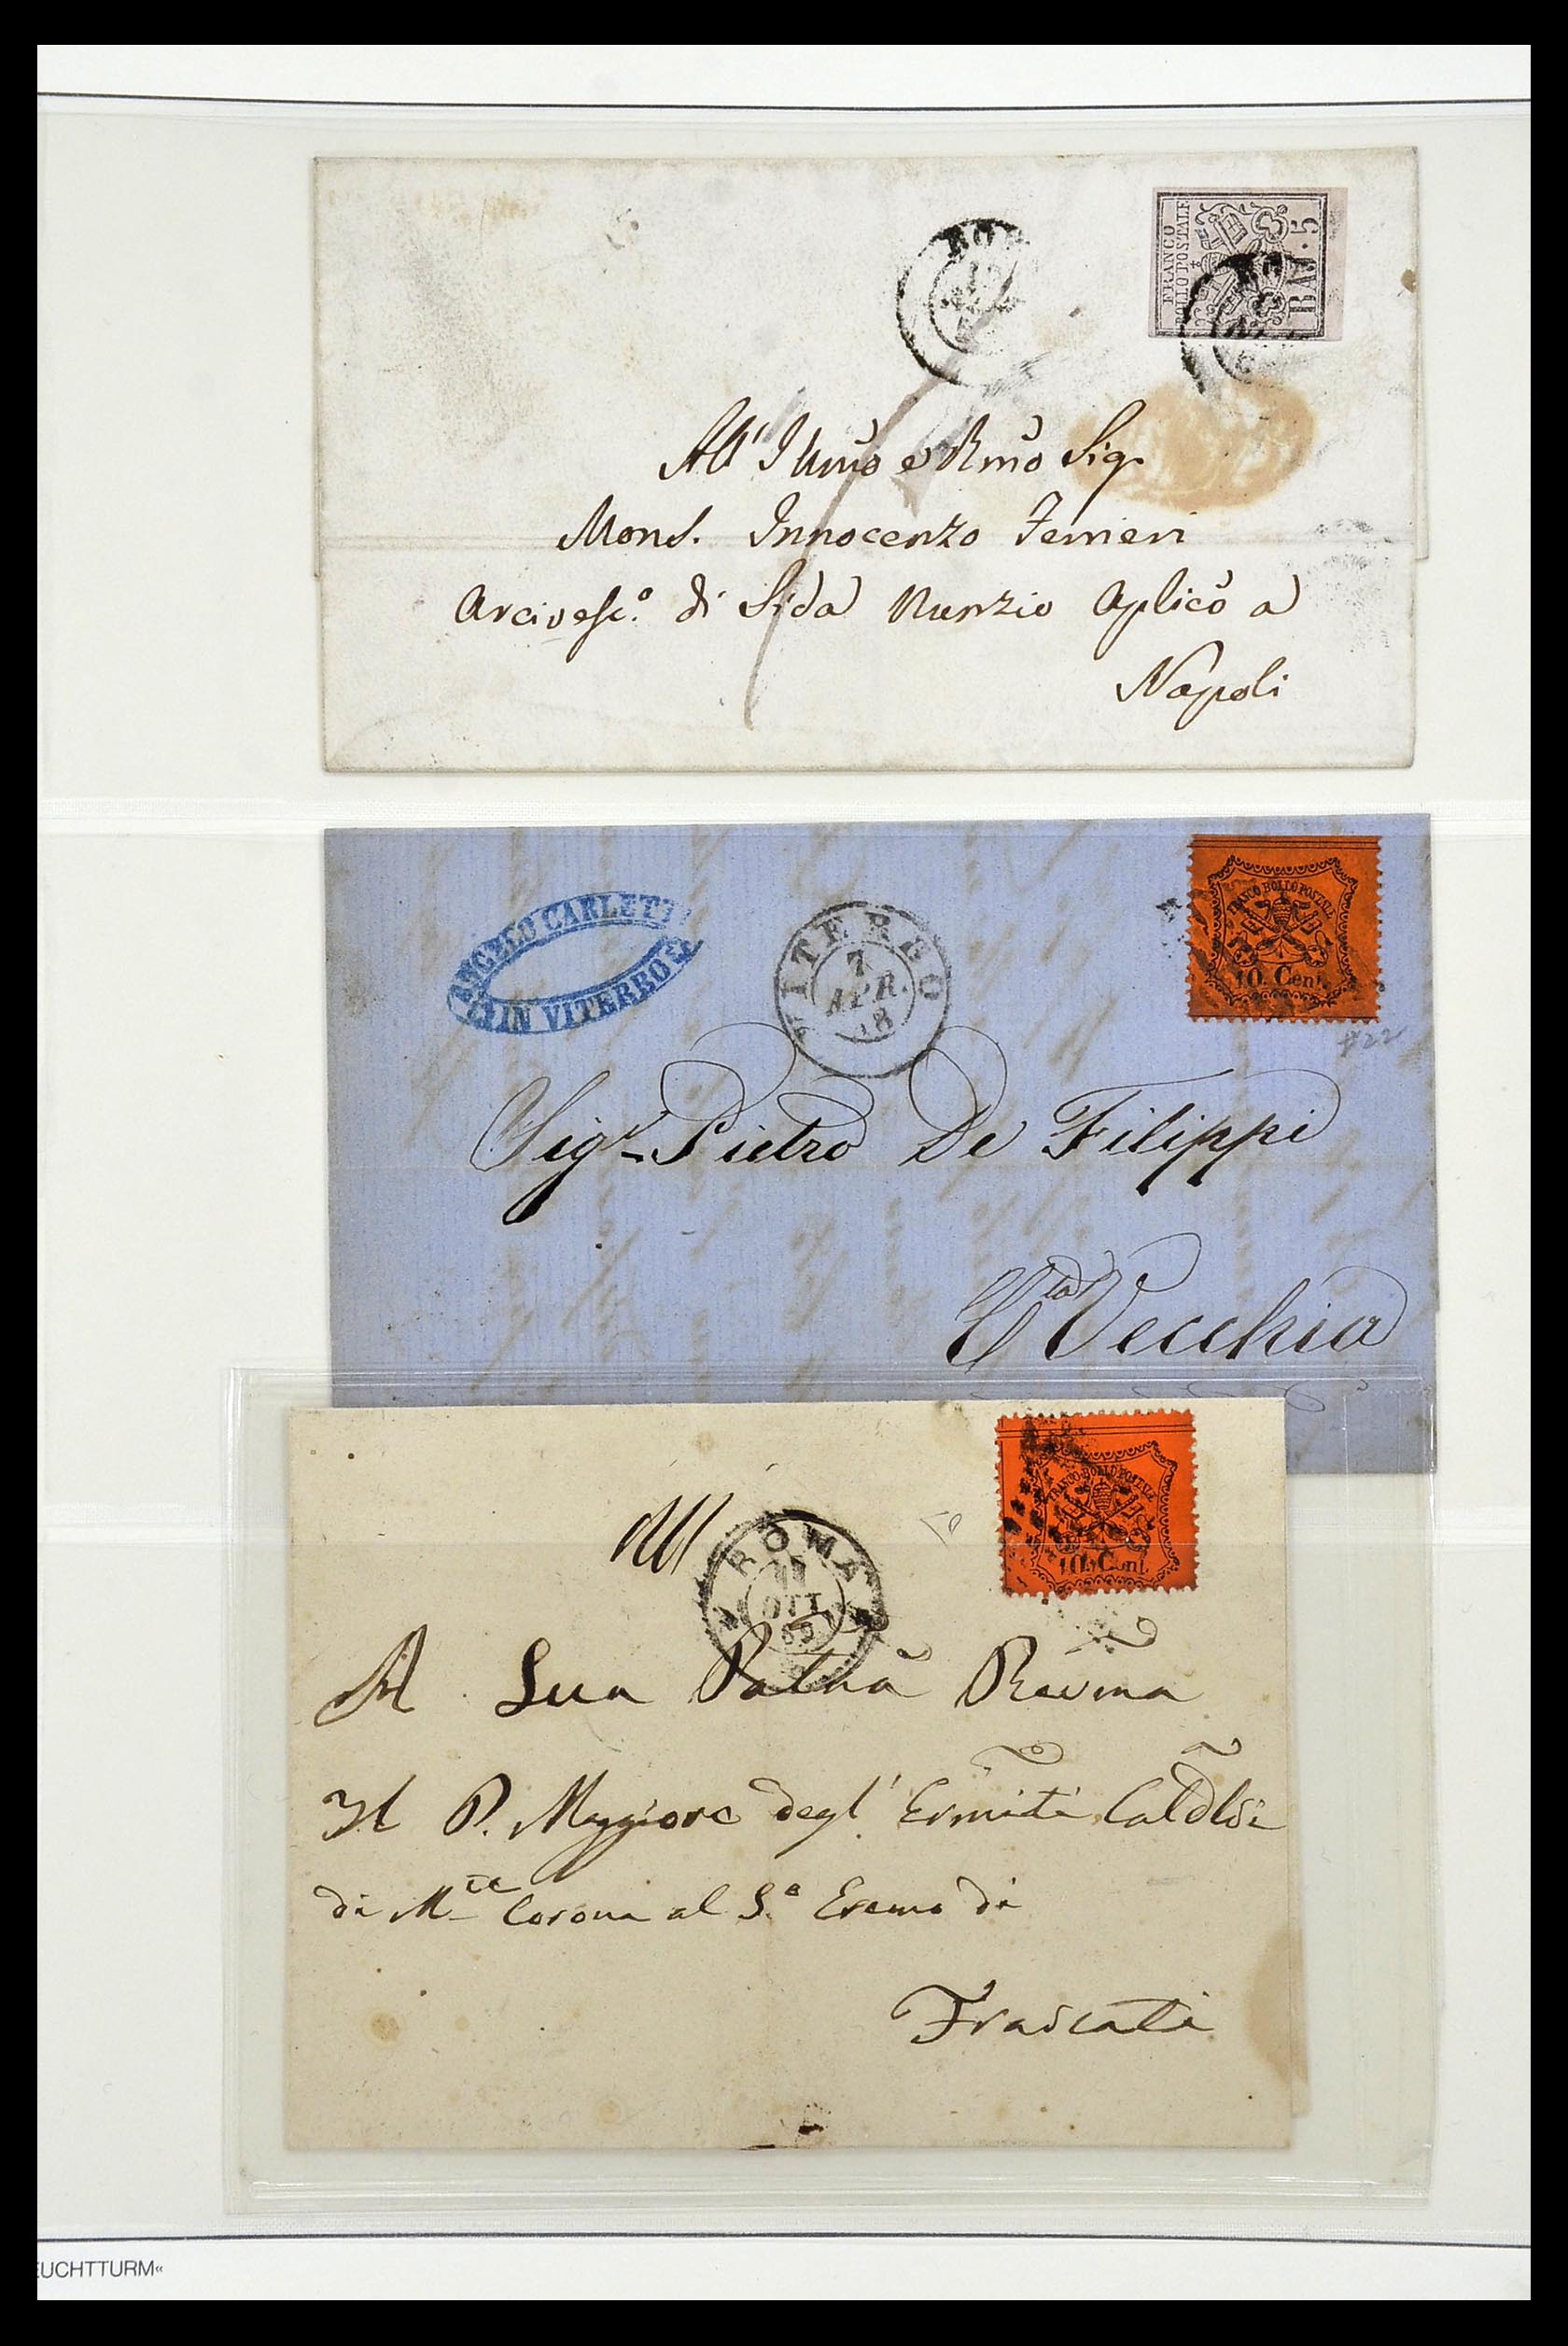 ROM
FRANCO
BOLLO POSTALE
BAJ. 5
All' Illmo e Rmo Sig.
Mons. Innocenzo Ferrieri
Arcivesc.o di Sida Nunzio Aplico a
Napoli
ANGELO CARLETTI
IN VITERBO
VITERBO
7
APR.
68
FRANCO BOLLO POSTALE
10. Cent.
#22
Sigr Pietro De Filippi
Cta Vecchia
ROMA
11
OTT
69
FRANCO BOLLO POSTALE
10. Cent.
A Sua Patnà Revma
Il P. Maggiore degl' Ermiti Caldlsi
di Mte Corona al S.o Eremo di
Frascati
EUCHTTURM«